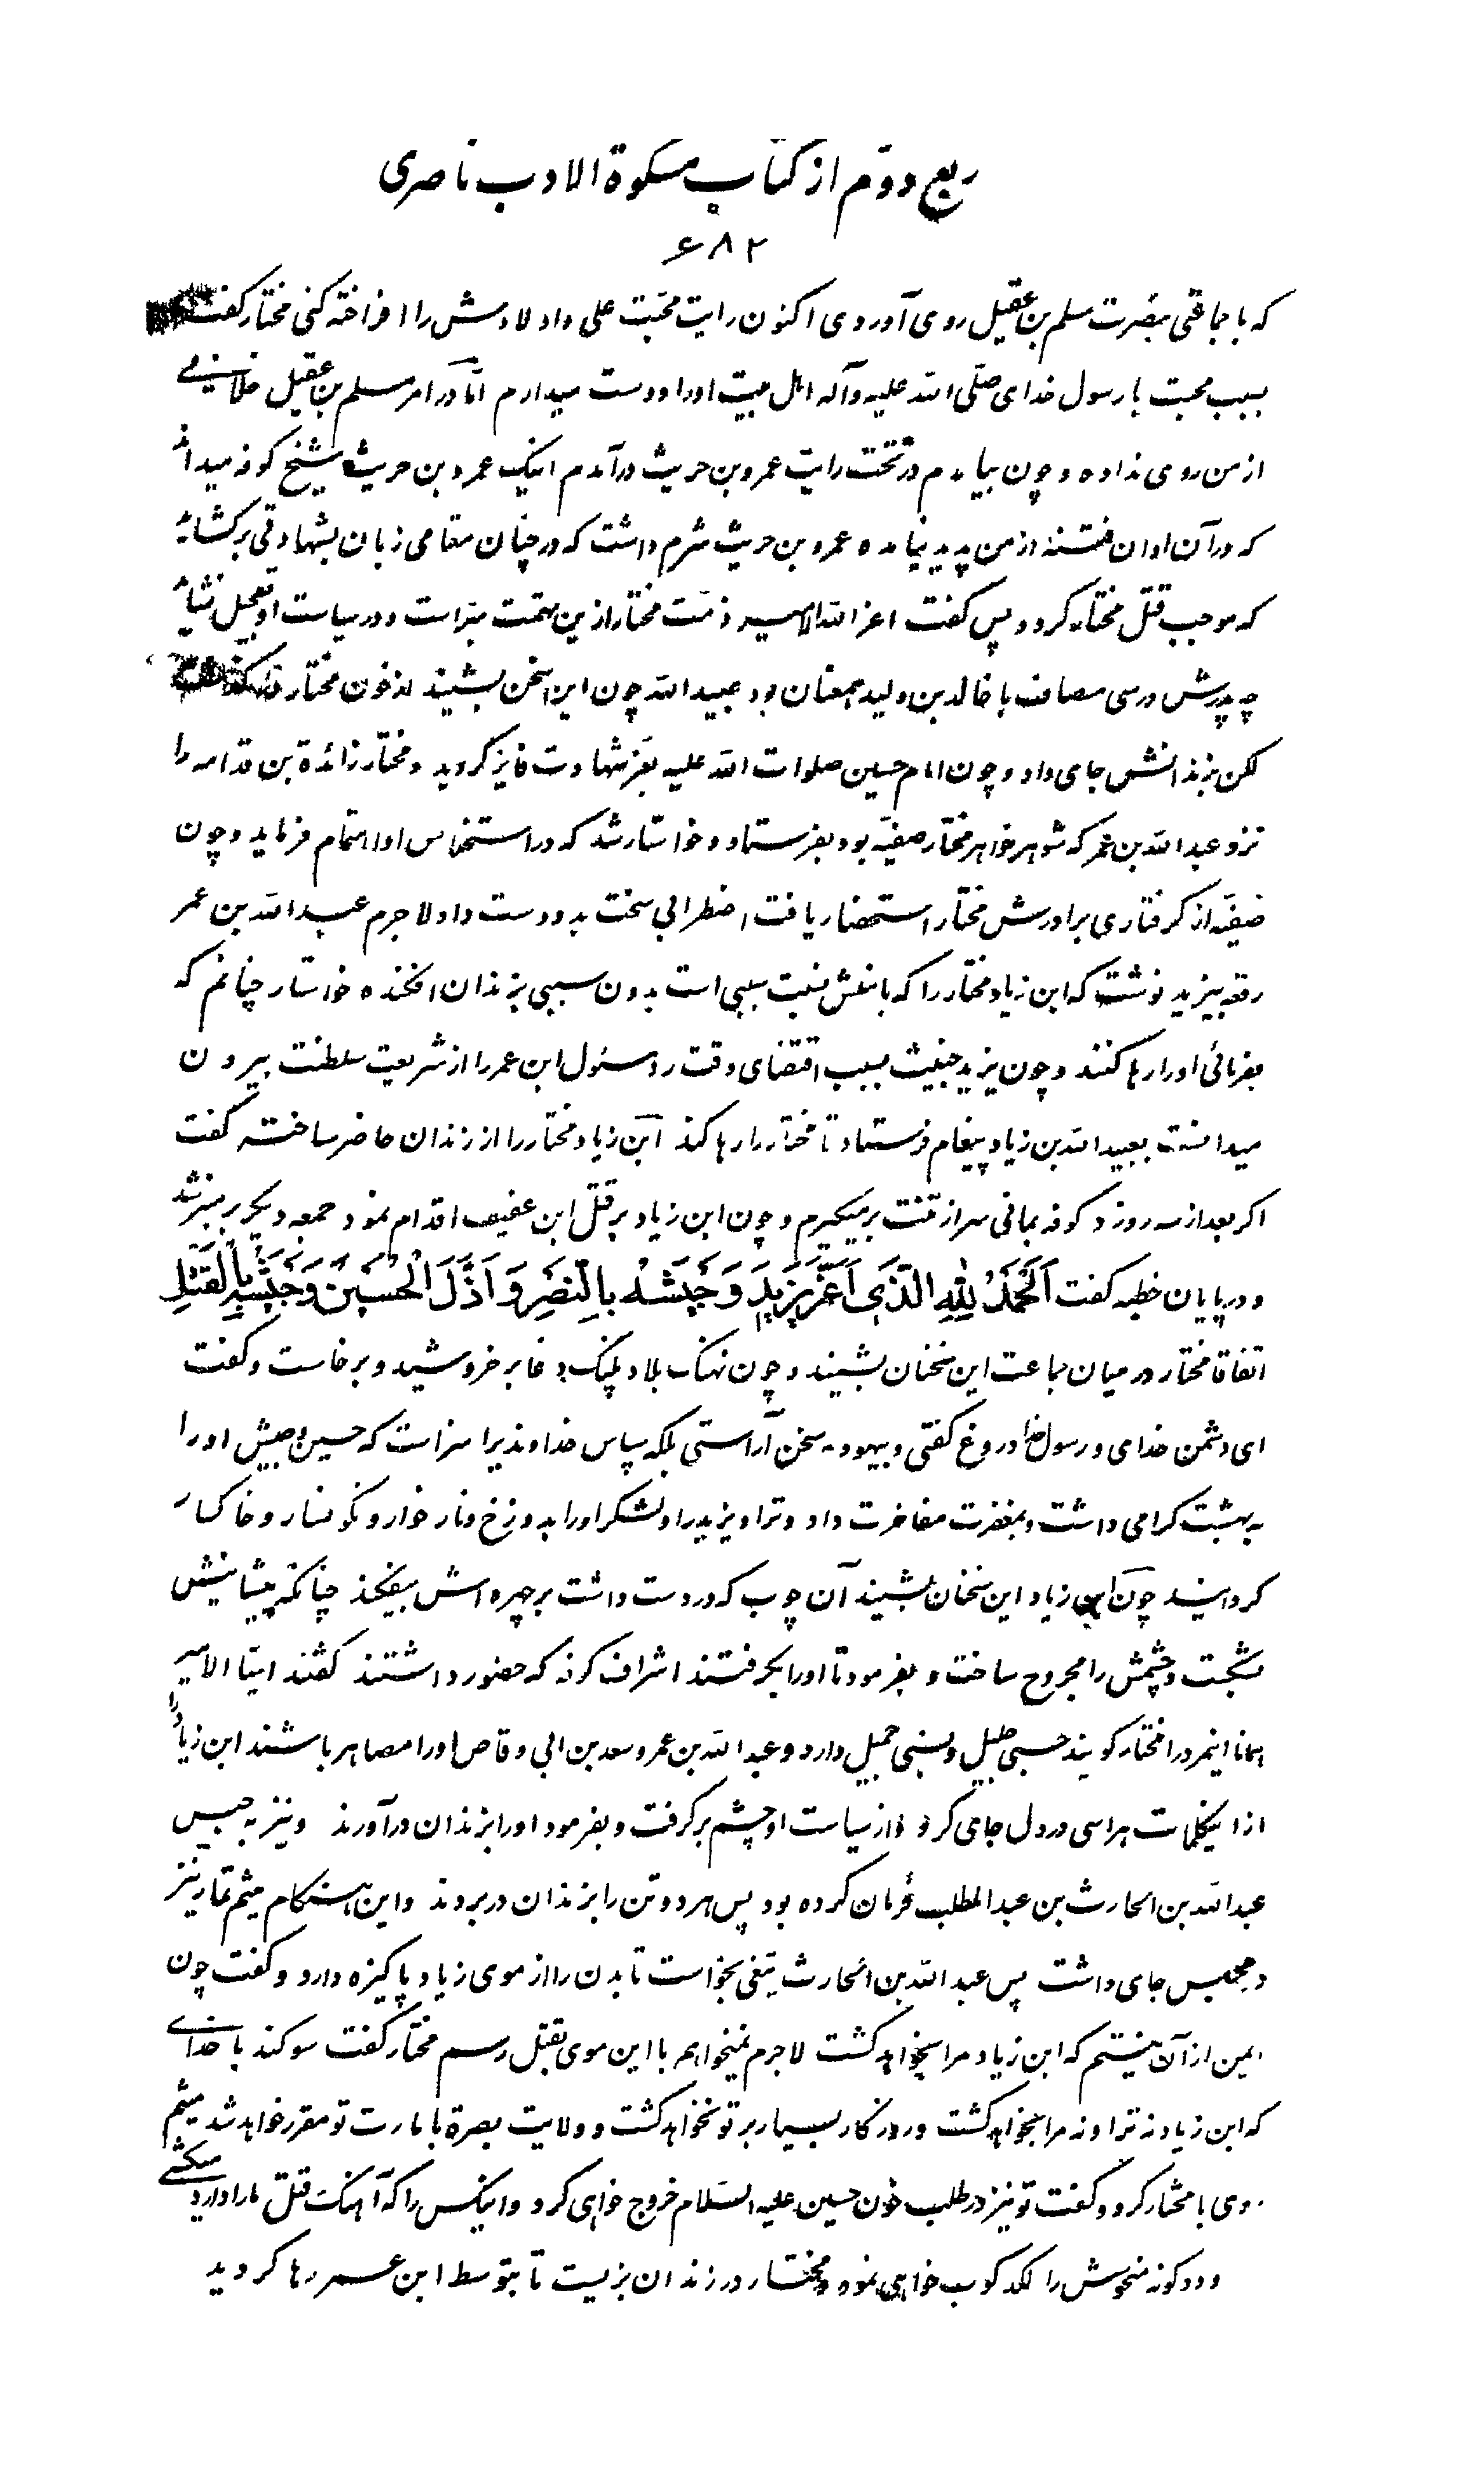 ربع دوّم از کتاب مشکوة الادب ناصری
۶۸۲
که با جماعتی بنصرت مسلم بن عقیل روی آوردی اکنون رایت محبّت علی و اولادش را افراخته کنی مختار گفت
بسبب محبت با رسول خدای صلّی الله علیه وآله اهل بیت او را دوست میدارم امّا در امر مسلم بن عقیل خلافی
از من روی نداده و چون بیامدم در تحت رایت عمرو بن حریث درآمدم اینک عمرو بن حریث شیخ کوفه میداند
که در آن اوان فتنه از من پدید نیامده عمرو بن حریث شرم داشت که در چنان مقامی زبان بشهادتی برکشاید
که موجب قتل مختار کردد پس کفت اعز الله الامیر ذمّت مختار ازین تهمت مبرّاست و در سیاست او تعجیل نشاید
چه پدرش در سی مصاف با خالد بن ولید همعنان بود عبید الله چون این سخن بشنید از خون مختار
لکن بزندانش جای داد و چون امام حسین صلوات الله علیه بعزّ شهادت فایز کردید و مختار زائدة بن قدامه را
نزد عبد الله بن عمر که شوهر خواهر مختار صفیّه بود بفرستاد و خواستار شد که در استخلاص او اهتمام فرماید و چون
صفیّه از کرفتاری برادرش مختار استحضار یافت اضطرابی سخت بدو دست داد لاجرم عبد الله بن عمر
رقعه بیزید نوشت که ابن زیاد مختار را که با منش نسبت سببی است بدون سببی بزندان افکنده خواستار چنانم که
بفرمائی او را رها کنند و چون یزید خبیث بسبب اقتضای وقت ردّ مسئول ابن عمر را از شریعت سلطنت بیرون
میدانست بعبید الله بن زیاد پیغام فرستاد تا مختار را رها کند ابن زیاد مختار را از زندان حاضر ساخته کفت
اکر بعد از سه روز در کوفه بمانی سر از تنت بر میکیرم و چون ابن زیاد بر قتل ابن عفیف اقدام نمود جمعه دیکر بر منبر شد
و در پایان خطبه کفت اَلْحَمْدُ لِلّٰهِ الَّذی اَعَزَّ یَزیدَ وَ جَیْشَهُ بِالنَّصْرِ وَ اَذَلَّ الْحُسَیْنَ وَ جَیْشَهُ بِالْقَتْلِ
اتفاقا مختار در میان جماعت این سخنان بشنید و چون نهنک بلا و پلنک دغا بر خروشید و برخاست و کفت
ای دشمن خدای و رسول خدا دروغ کفتی و بیهوده سخن آراستی بلکه سپاس خداوندیرا سزاست که حسین و جیش او را
به بهشت کرامی داشت و بمغفرت مفاخرت داد و ترا و یزید را و لشکر او را بدوزخ و نار خوار و نکونسار و خاکسار
کردانید چون ابن زیاد این سخنان بشنید آن چوب که در دست داشت بر چهره اش بیفکند چنانکه پیشانیش
بشکست و چشمش را مجروح ساخت و بفرمود تا او را بکرفتند اشراف کوفه که حضور داشتند کفتند ایّها الامیر
همانا اینمرد را مختار کویند حسبی جلیل و نسبی جمیل دارد و عبد الله بن عمر و سعد بن ابی وقاص او را مصاهر باشند ابن زیاد را
از اینکلمات هراسی در دل جای کرد و از سیاست او چشم برکرفت و بفرمود او را بزندان درآورند و نیز به حبس
عبد الله بن الحارث بن عبد المطلب فرمان کرده بود پس هر دو تن را بزندان در بردند و این هنکام میثم تمّار نیز
در محبس جای داشت پس عبد الله بن الحارث تیغی بخواست تا بدن را از موی زیاد پاکیزه دارد و کفت چون
ایمن از آن نیستم که ابن زیاد مرا بخواهد کشت لاجرم نمیخواهم با این موی بقتل رسم مختار کفت سوکند با خدای
که ابن زیاد نه ترا و نه مرا بخواهد کشت و روزکار بسیار بر تو نخواهد کشت و ولایت بصرة با مارت تو مقرر خواهد شد میثم
روی با مختار کرد و کفت تو نیز در طلب خون حسین علیه السّلام خروج خواهی کرد و اینکس را که آهنک قتل ما را دارد میکشی
و دو کونه منحوسش را لکد کوب خواهی نمود و مختار در زندان بزیست تا بتوسط ابن عمر رها کردید